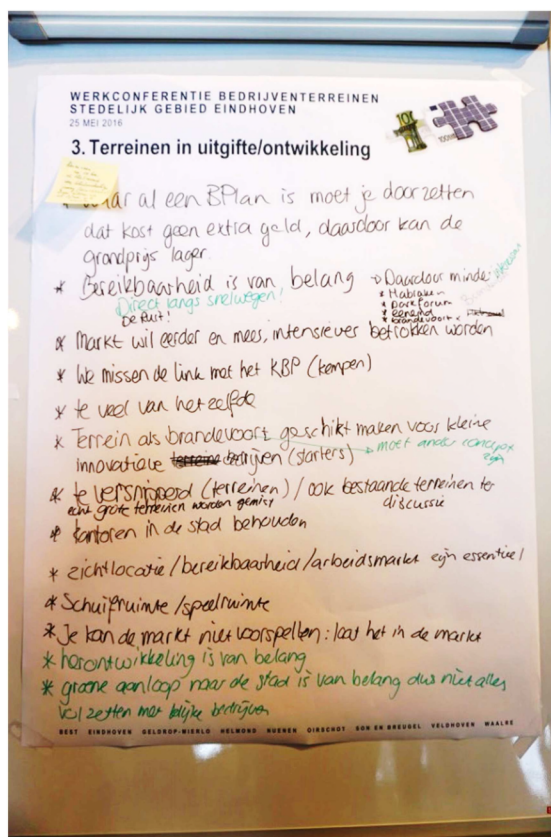 WERKCONFERENTIE BEDRIJVENTERREINEN
STEDELIJK GEBIED EINDHOVEN
25 MEI 2016
100
3. Terreinen in uitgifte/ontwikkeling
* Waar al een BPlan is moet je doorzetten
dat kost geen extra geld, daardoor kan de
grondprijs lager.
* Bereikbaarheid is van belang → Daardoor minder
Direct langs snelwegen!
De Ruit!
* Habraken
* Parkforum
* eeneind
* brandevoort
* Markt wil eerder en mees, intensiever betrokken worden
* We missen de link met het KBP (kempen)
* te veel van hetzelfde
* Terrein als brandevoort geschikt maken voor kleine
innovatieve bedrijven (starters) → moet ander concept
zijn
* te versnipperd (terreinen) / ook bestaande terreinen ter
discussie
echt grote terreinen worden gemist
* kantoren in de stad behouden
* zichtlocatie/bereikbaarheid/arbeidsmarkt zijn essentieel
* Schuifruimte/speelruimte
* Je kan de markt niet voorspellen: laat het in de markt
* herontwikkeling is van belang
* groene aanloop naar de stad is van belang dus niet alles
vol zetten met blije bedrijven
BEST EINDHOVEN GELDROP-MIERLO HELMOND NUENEN OIRSCHOT SON EN BREUGEL VELDHOVEN WAALRE